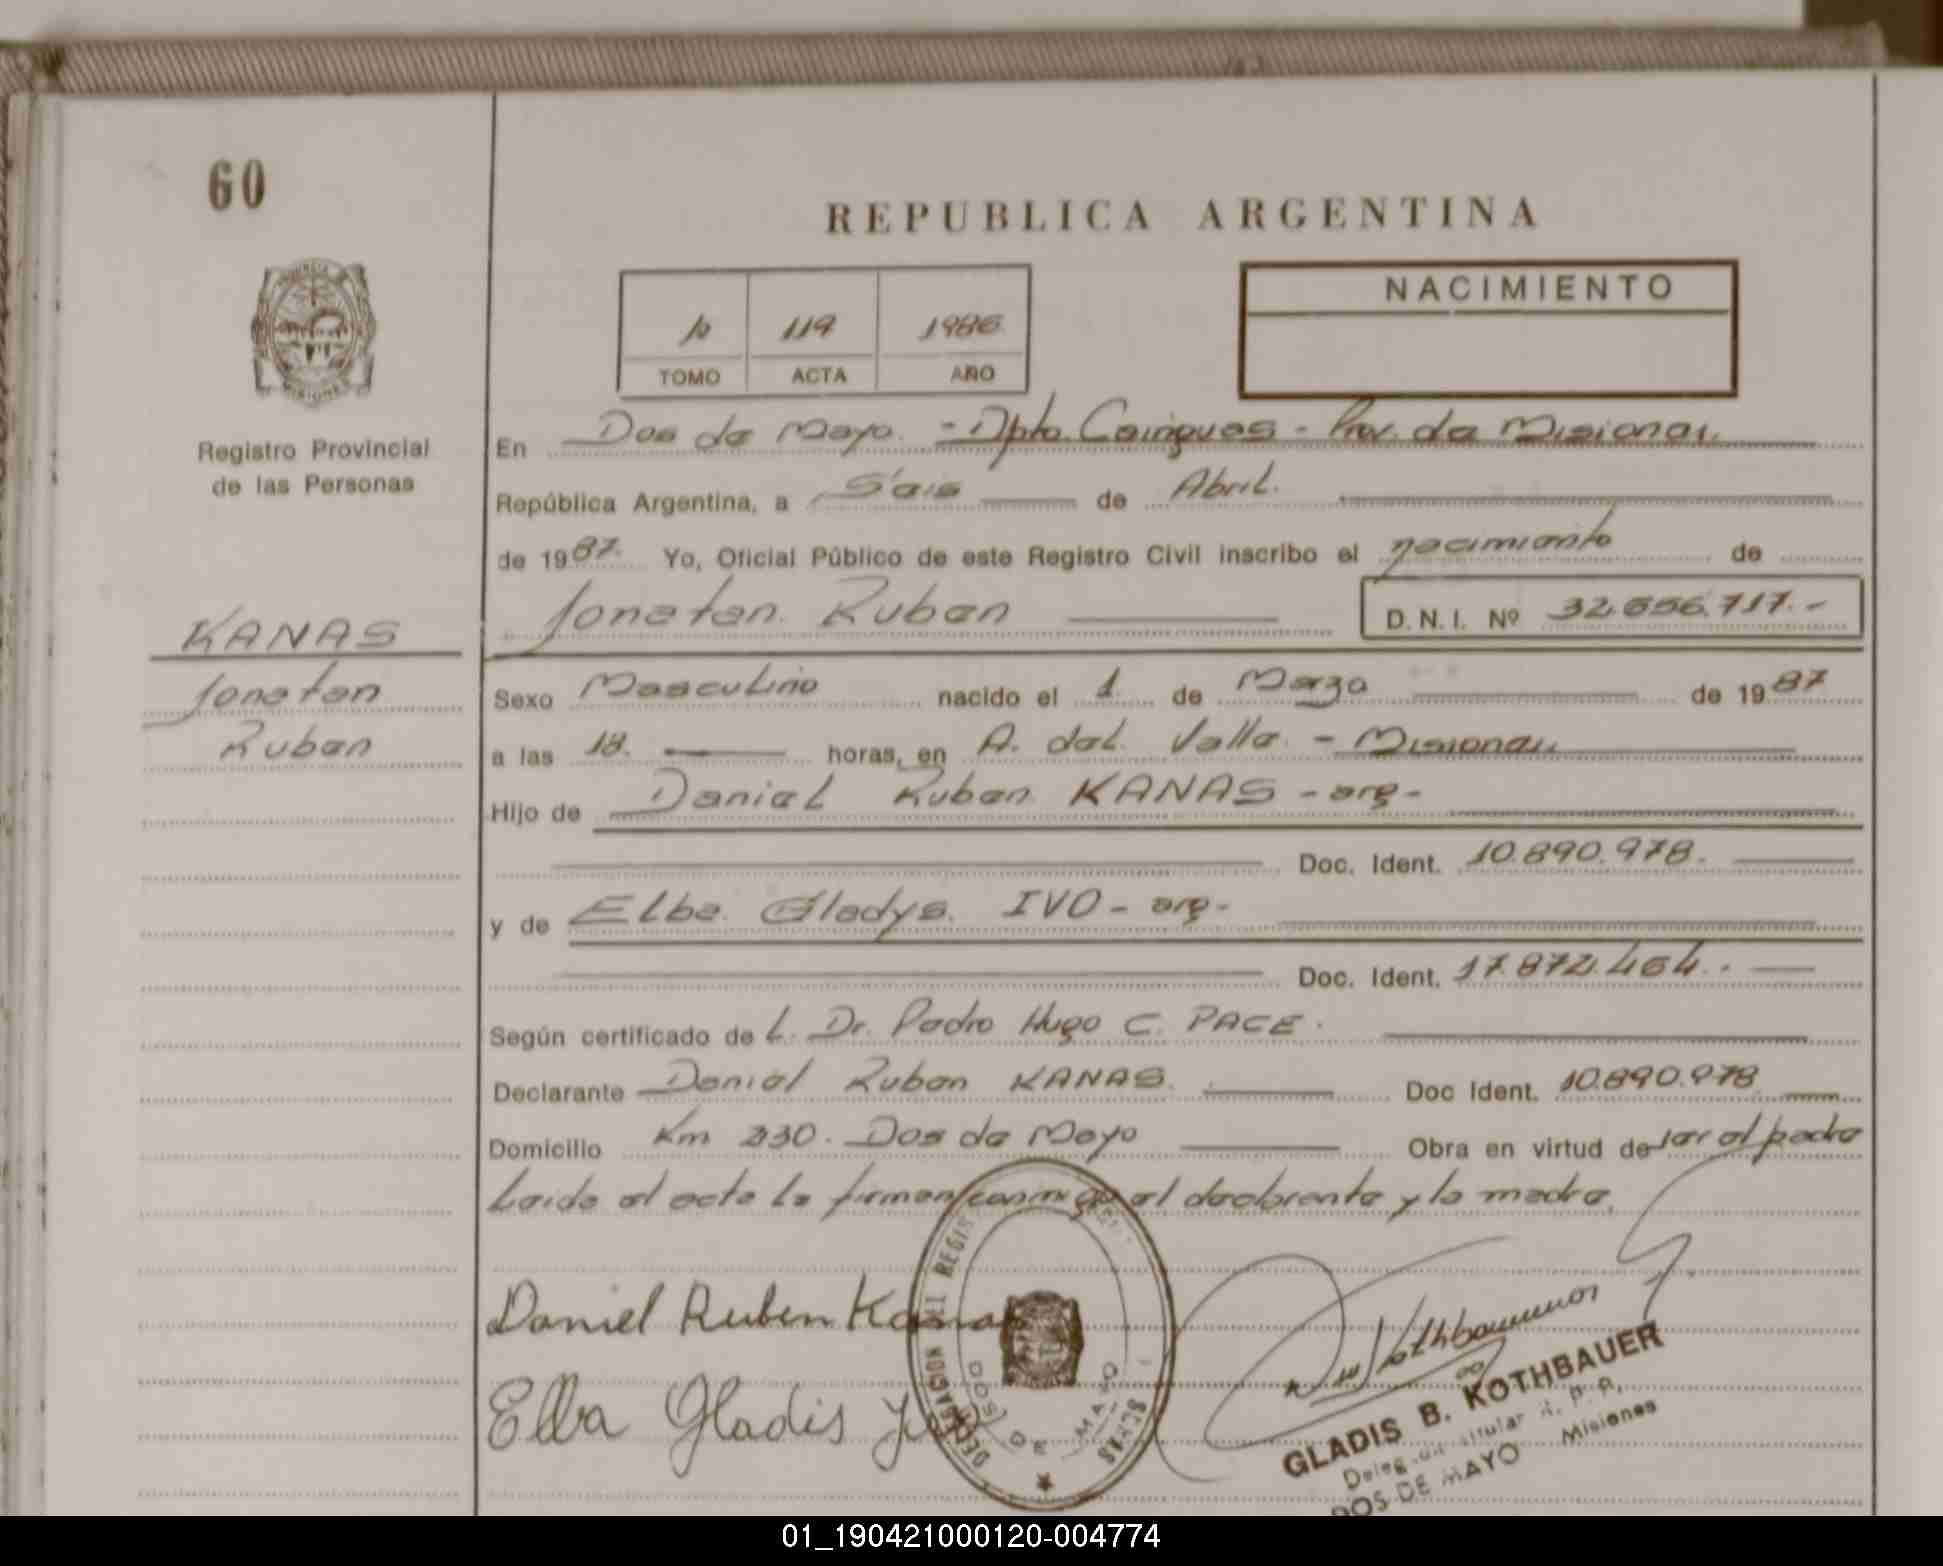 60
REPUBLICA ARGENTINA
NACIMIENTO
119 1986
TOMO ACTA AÑO
Registro Provincial
de las Personas
En Dos de Mayo. - Dpto. Cainguas - Prov. de Misiones.
República Argentina, a Seis de Abril.
de 1987. Yo, Oficial Público de este Registro Civil inscribo el nacimiento de
Jonatan Ruben D.N.I. Nº 32.556.717.-
KANAS
Jonatan
Ruben
Sexo Masculino nacido el 1 de Marzo de 1987
a las 18. horas, en A. del Valle - Misiones
Hijo de Daniel Ruben KANAS - arg -
Doc. Ident. 10.890.978.
y de Elba Gladys. IVO - arg -
Doc. Ident. 17.872.464.-
Según certificado de L. Dr. Pedro Hugo C. PACE.
Declarante Daniel Ruben KANAS. Doc Ident. 10.890.978
Domicilio Km 230. Dos de Mayo Obra en virtud de ser el padre
Leida el acta la firman conmigo el declarante y la madre.
Daniel Ruben Kanas
Elba Gladis Ivo
DELEGACION REGIS
DOS DE MAYO
GLADIS B. KOTHBAUER
DOS DE MAYO Misiones
01_190421000120-004774